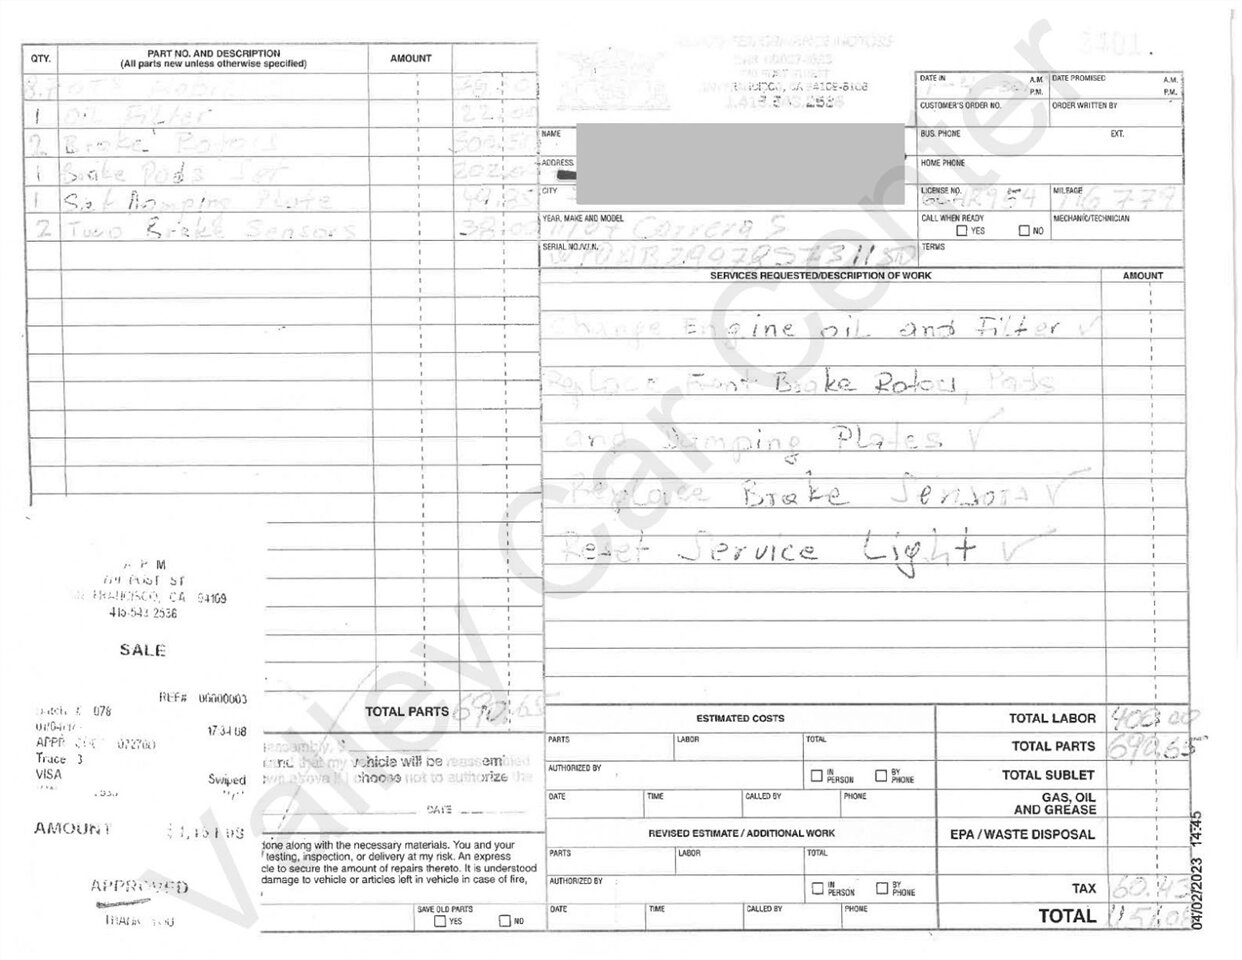 QTY.
PART NO. AND DESCRIPTION
(All parts new unless otherwise specified)
AMOUNT
1 Oil Filter 22.00
2 Brake Rotors
1 Brake Pads Set 202.00
1 Set Damping Plate 49.25
2 Two Brake Sensors 38.00
TOTAL PARTS 690.65
SAN FRANCISCO, CA 94109-8108
1.415.543.2536
DATE IN
A.M.
P.M.
DATE PROMISED
A.M.
P.M.
CUSTOMER'S ORDER NO.
ORDER WRITTEN BY
NAME
BUS. PHONE
EXT.
ADDRESS
HOME PHONE
CITY
LICENSE NO.
MILEAGE
116 779
YEAR, MAKE AND MODEL
07 Carrera S
CALL WHEN READY
YES
NO
MECHANIC/TECHNICIAN
SERIAL NO./V.I.N.
TERMS
SERVICES REQUESTED/DESCRIPTION OF WORK
AMOUNT
Change Engine oil and Filter ✓
Replace Front Brake Rotors, Pads
and Damping Plates ✓
Replace Brake Sensors ✓
Reset Service Light ✓
POST ST
FRANCISCO, CA 94109
415-543-2536
SALE
REF# 00000003
078
17:34:08
Trace 3
VISA
Swiped
AMOUNT
APPROVED
THANK YOU
and that my vehicle will be reassembled
above if I choose not to authorize the
DATE
done along with the necessary materials. You and your
testing, inspection, or delivery at my risk. An express
cle to secure the amount of repairs thereto. It is understood
damage to vehicle or articles left in vehicle in case of fire,
SAVE OLD PARTS
YES
NO
ESTIMATED COSTS
PARTS
LABOR
TOTAL
AUTHORIZED BY
IN PERSON
BY PHONE
DATE
TIME
CALLED BY
PHONE
REVISED ESTIMATE / ADDITIONAL WORK
PARTS
LABOR
TOTAL
AUTHORIZED BY
IN PERSON
BY PHONE
DATE
TIME
CALLED BY
PHONE
TOTAL LABOR 400.00
TOTAL PARTS 690.65
TOTAL SUBLET
GAS, OIL
AND GREASE
EPA / WASTE DISPOSAL
TAX 60.43
TOTAL 1151.08
04/02/2023 14:45
Valley Car Center